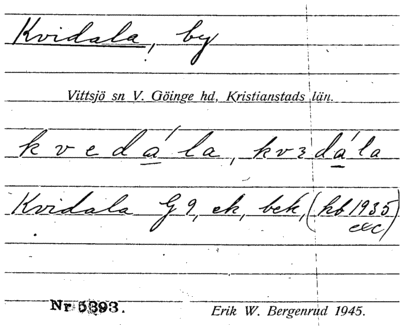 Kvidala, by
Vittsjö sn V. Göinge hd, Kristianstads län.
kvedála, kvɜdála
Kvidala G 9, ek, bek, (kb 1935
etc)
Nr 5393.
Erik W. Bergenrud 1945.